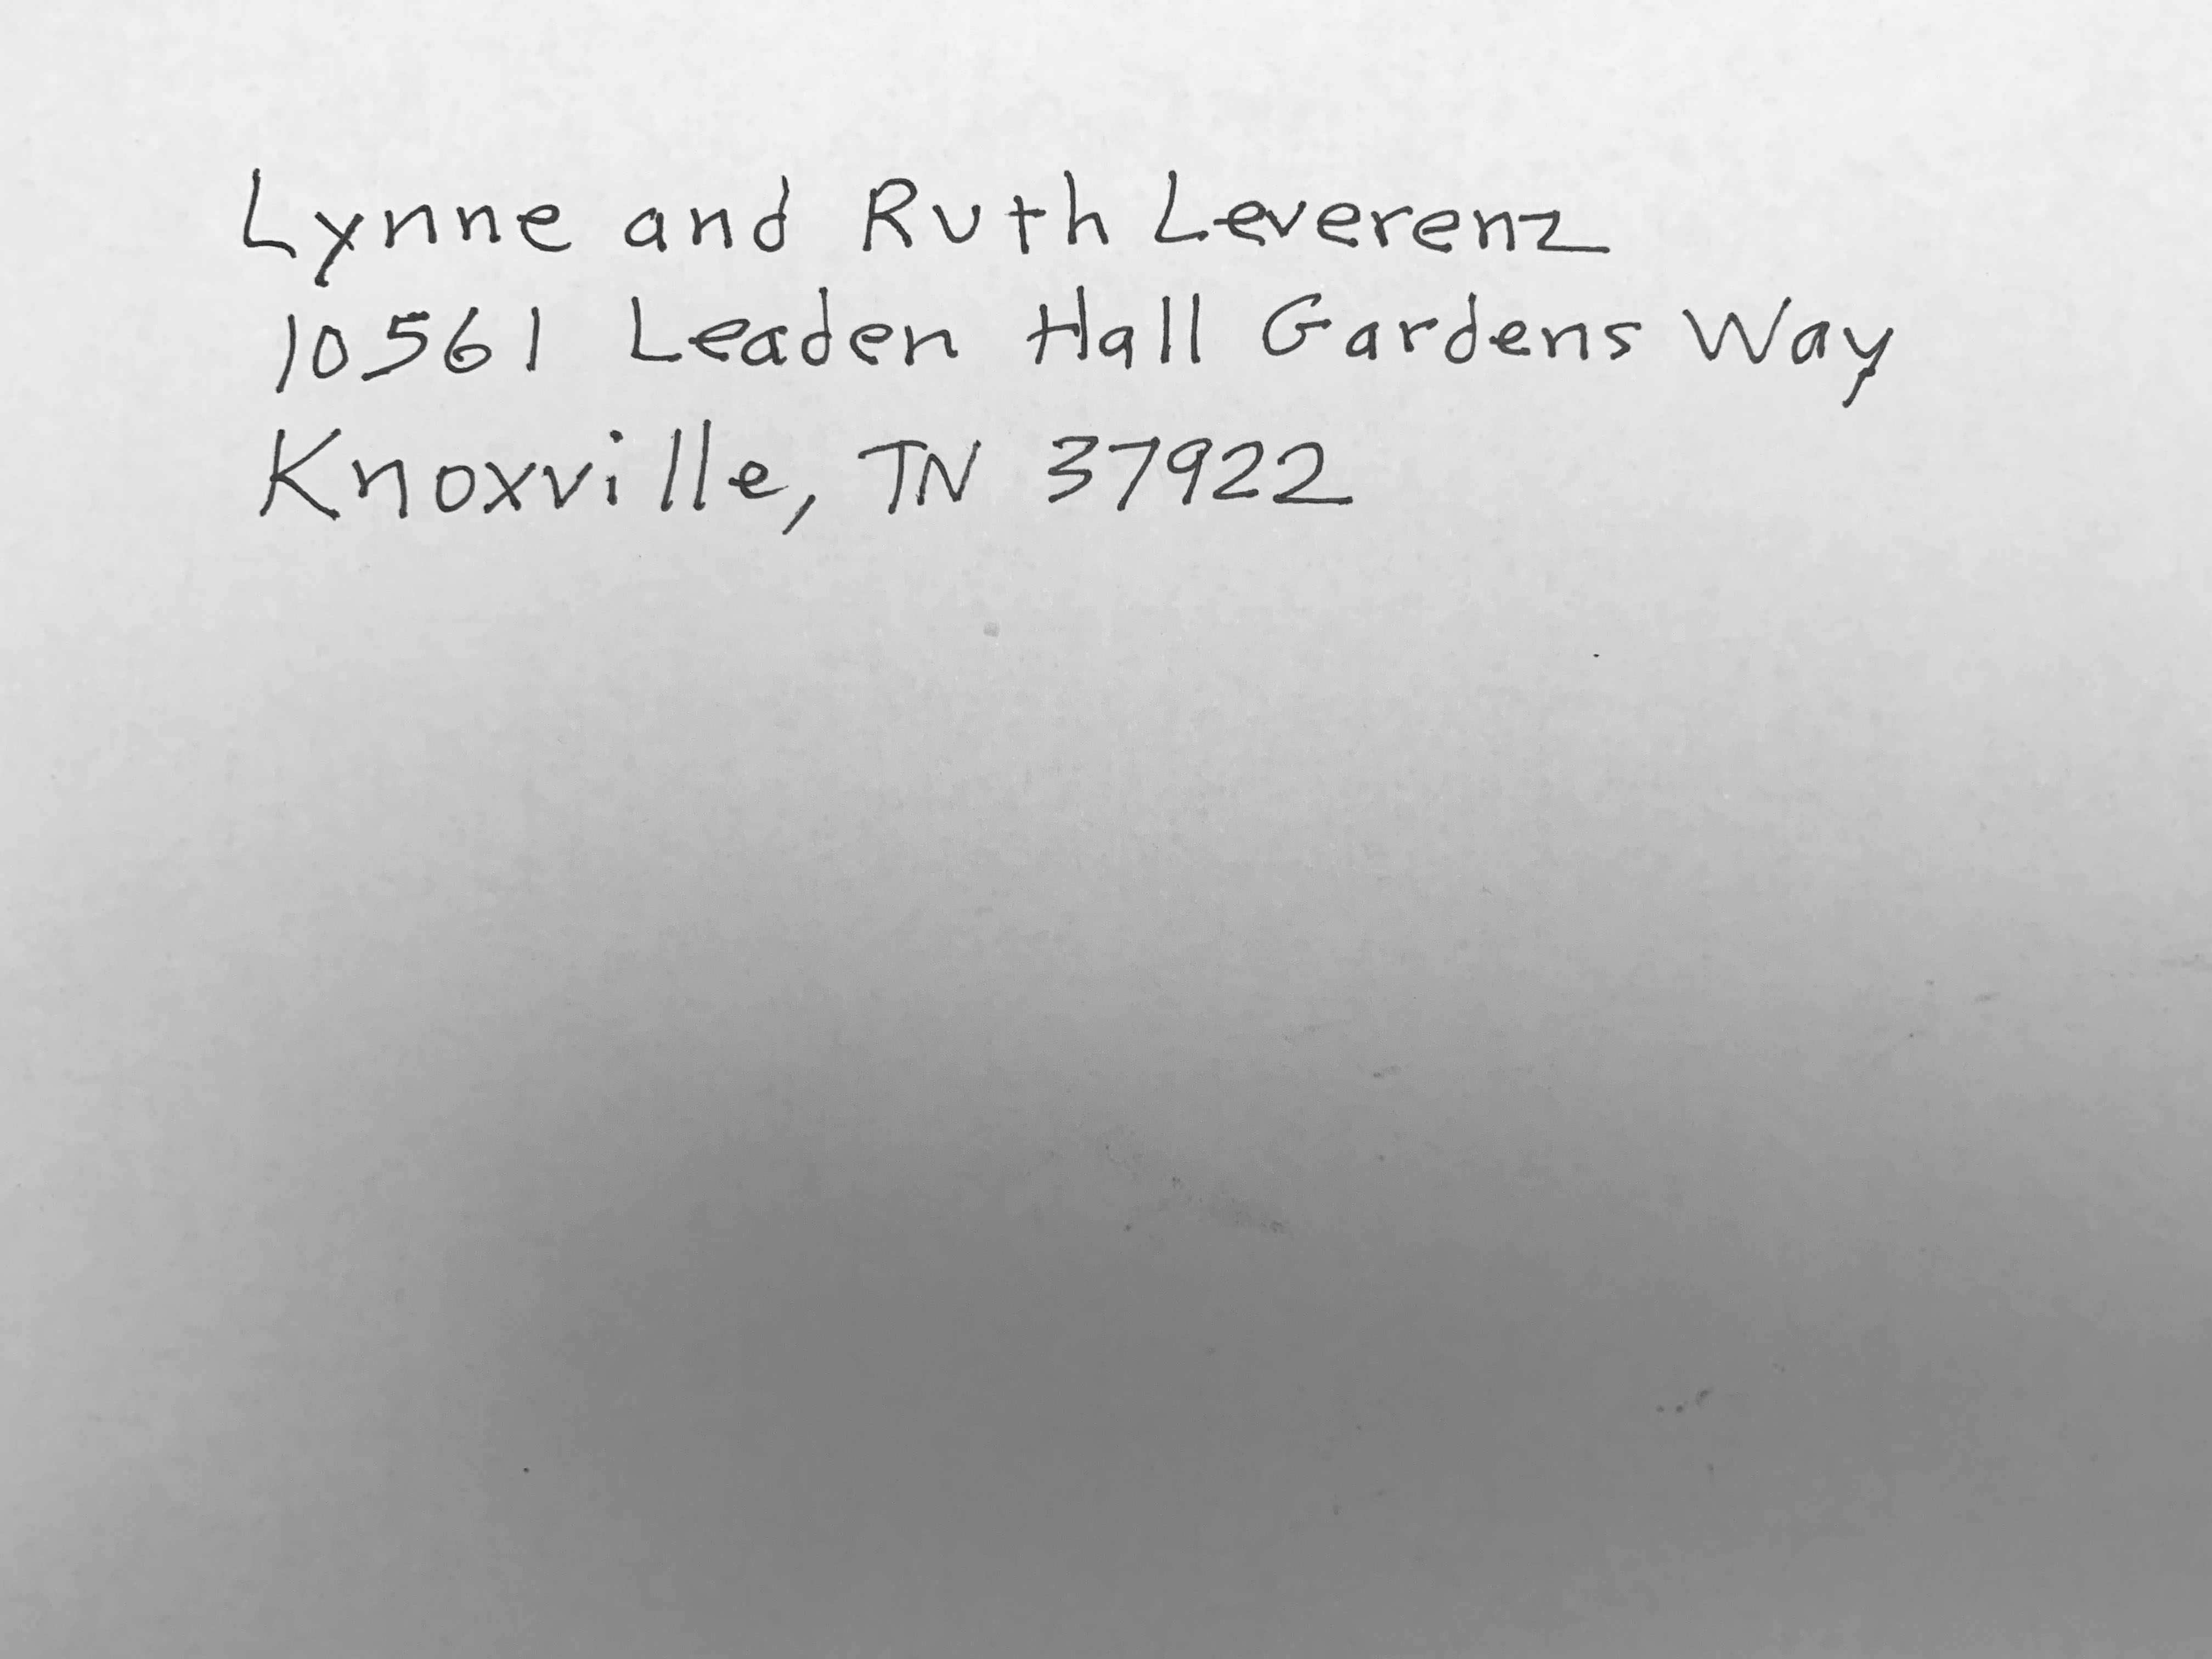 Lynne and Ruth Leverenz
10561 Leaden Hall Gardens Way
Knoxville, TN 37922